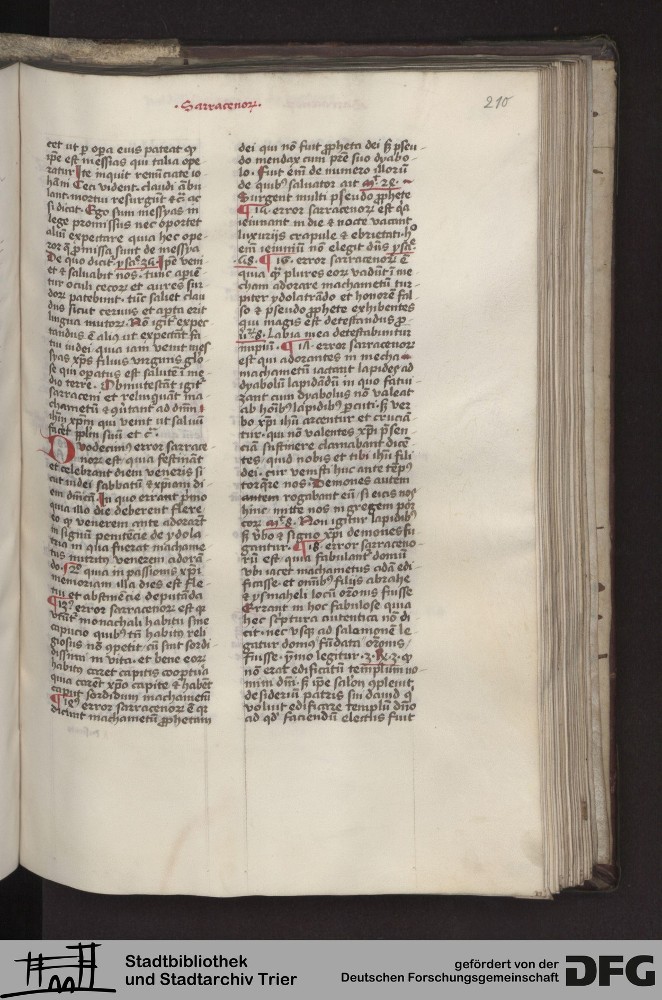 Sarracenor.
210
cet ut p opa eius pateat q
ipe est messias qui talia ope
ratur Ite inquit renūciate io
hāni Ceci vident claudi ābu
lant mortui resurgūt &
si dicat Ego sum messyas in
lege promissus nec oportet
aliū expectare quia hec ope
ra promissa sunt de messya
De quo dicit ysa 35 Ipe veni
et & saluabit nos tunc apien
tur oculi cecor et aures sur
dor patebunt tūc saliet clau
dus sicut ceruus et apta erit
lingua mutor Nō igit expec
tandus ē alius ut expectāt
iudei quia iam venit mes
syas xps filius virginis glo
se qui opatus est salutē ī me
dio terre Obmutescāt igit
sarraceni et relinquāt ma
chametū & ad dnm
ihm xpm qui venit ut saluū
faceret pplm suū et c
Duodecimus error sarrace
nor est quia festināt
et celebrant diem veneris si
cut iudei sabbatū & xpiani di
em dnicā In quo errant pmo
quia illo die deberent flere
eo q venerem ante adorarūt
in signū penitēcie de ydola
tria in qua fuerat machame
tus nutritus venerem adorā
do quia in passionis xpi
memoriam illa dies est fle
tui et abstinēcie deputāda
13 error sarracenor est q
utunt monachali habitu sine
capucio quibus tn habitus reli
giosus nō competit cū sint sordi
dissimi in vita et bene eor
habitus caret capitis cooptura
quia caret xpo capite & habet
caput sordidum machametū
error sarracenor ē q
dicunt machametū prophetam
dei qui nō fuit propheta dei s pseu
do mendax cum pre suo dyabo
lo Fuit em de numero illorū
de quibus saluator ait mr 24
Surgent multi pseudo prophete
error sarracenor est qa
ieiunant in die & nocte vacant
luxuriis crapule & ebrietati
em ieiuniū nō elegit dus ysa
58 error sarracenor ē
quia plures eor vadūt ī me
cham adorare machametū tur
piter ydolatrādo et honorē fal
so & pseudo prophete exhibentes
qui magis est detestandus
8 Labia mea detestabuntur
impiū error sarracenor
est qui adorantes in mecha
machametū iactant lapides ad
dyabolū lapidādū in quo fatui
zant cum dyabolus nō valeat
ab hoibus lapidibus pcuti s ver
bo xpi ihu arcentur et crucia
tur qui nō valentes xpi psen
ciā sustinere clamabant dicē
tes quid nobis et tibi ihu fili
dei cur venisti huc ante temps
torqre nos Demones autem
autem rogabant eū si eicis nos
hinc mitte nos in gregem por
cor mr 8 Non igitur lapidibus
s vbo & signo xpi demones fu
gantur 18 error sarraceno
rū est quia fabulant domū
ubi iacet machametus adā edi
ficasse et omibus filiis abrahe
& ysmaheli locū oronis fuisse
Errant in hoc fabulose quia
hec scptura autentica nō di
cit nec usq ad salamonē le
gatur domus fūdata oronis
fuisse ymo legitur 3 Re 3 q
nō erat edificatū templum no
mini dni s ipe salon opleuit
desideriū patris sui dauid q
voluit edificare templū dno
ad qd faciendū electus fuit
Stadtbibliothek
und Stadtarchiv Trier
gefördert von der
Deutschen Forschungsgemeinschaft
DFG